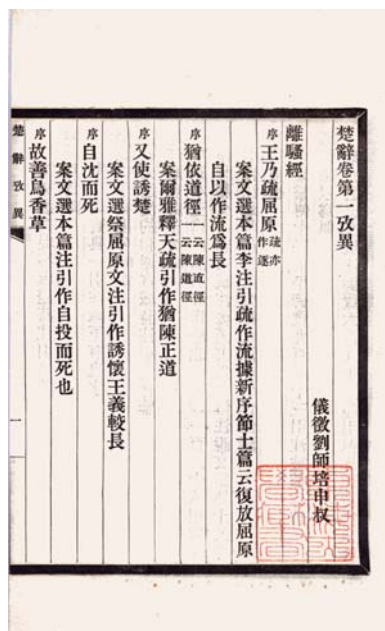 楚辭卷第一攷異
儀徵劉師培申叔
離騷經
序 王乃疏屈原 疏亦作逐
案文選本篇李注引疏作流據新序節士篇云復放屈原
自以作流爲長
序 猶依道徑 一云陳直徑 一云陳道徑
案爾雅釋天疏引作猶陳正道
序 又使誘楚
案文選祭屈原文注引作誘懷王義較長
序 自沈而死
案文選本篇注引作自投而死也
序 故善鳥香草
楚辭攷異
一